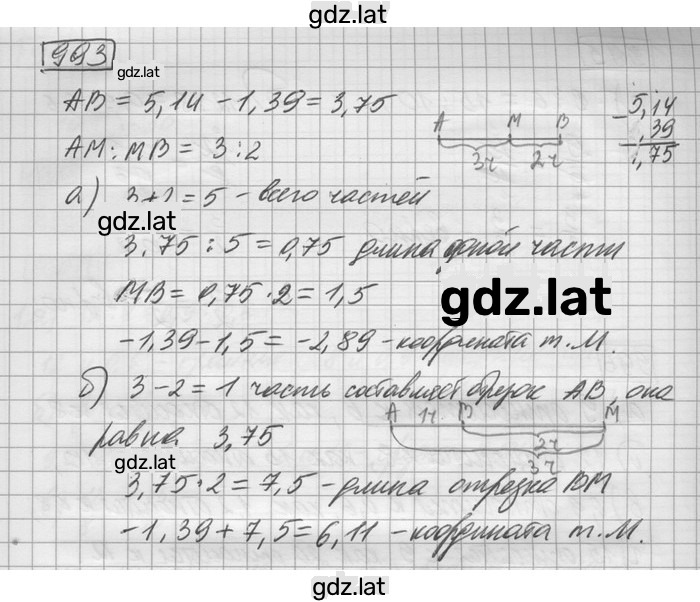 gdz.lat
993
gdz.lat
AB = 5,14 - 1,39 = 3,75
A M B
3ч 2ч
- 5,14
1,39
3,75
AM : MB = 3 : 2
а) 3+2 = 5 - всего частей
gdz.lat
3,75 : 5 = 0,75 длина одной части
MB = 0,75 · 2 = 1,5
gdz.lat
-1,39 - 1,5 = -2,89 - координата т. М.
б) 3 - 2 = 1 часть составляет отрезок AB, она
A 1ч B M
2ч
3ч
равна 3,75
gdz.lat
3,75 · 2 = 7,5 - длина отрезка BM
-1,39 + 7,5 = 6,11 - координата т. М.
gdz.lat